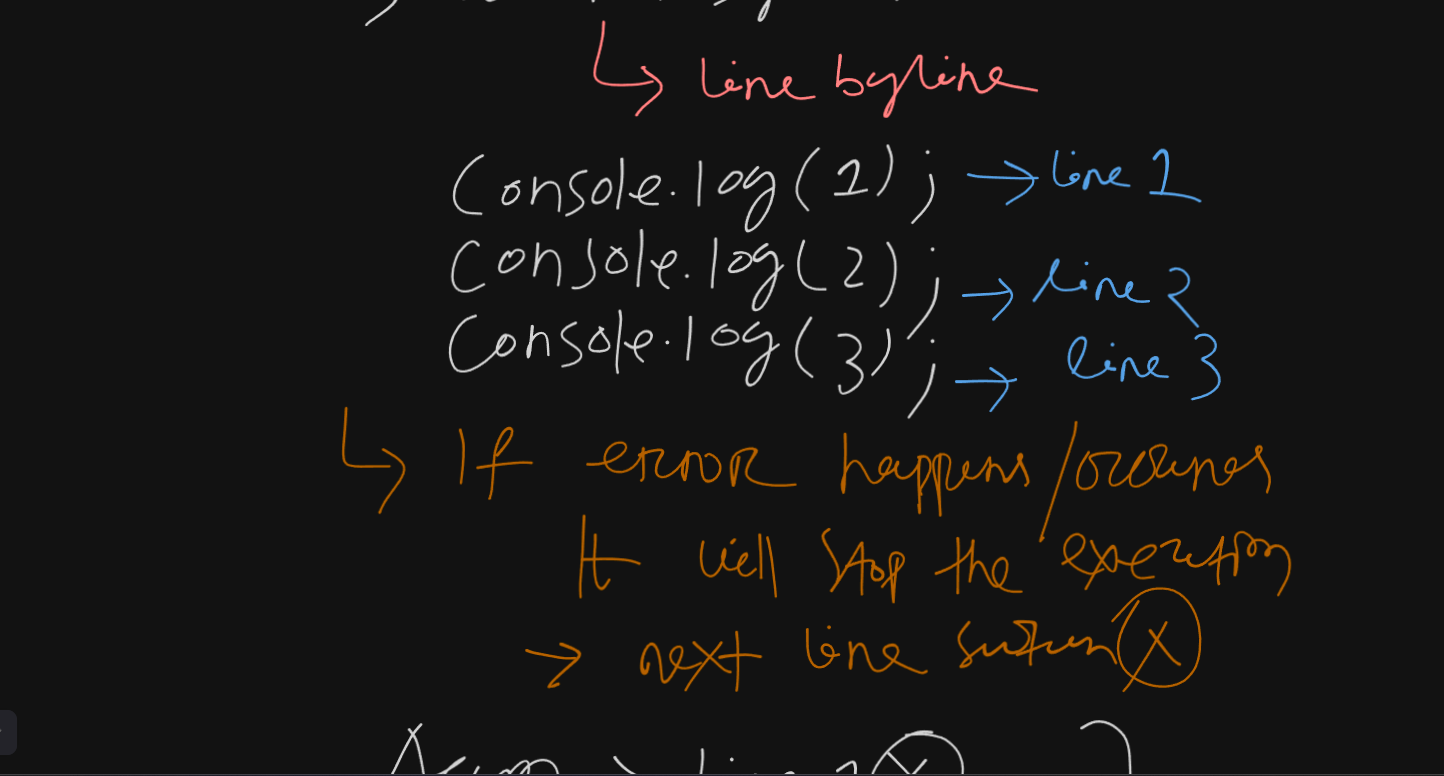 ↳ line by line
Console.log(1); → line 1
Console.log(2); → line 2
Console.log(3); → line 3
↳ If error happens/
It will stop the execution
→ next line X